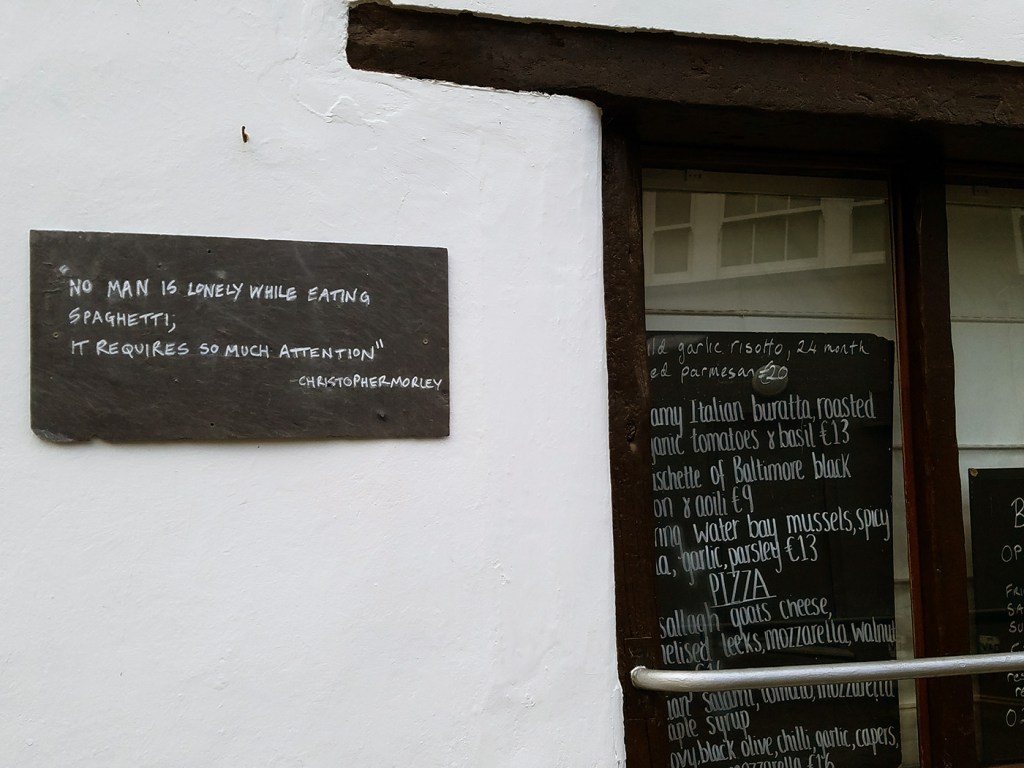 "NO MAN IS LONELY WHILE EATING
SPAGHETTI;
IT REQUIRES SO MUCH ATTENTION"
-CHRISTOPHER MORLEY
ild garlic risotto, 24 month
ed parmesan €20
amy Italian buratta, roasted
ganic tomatoes & basil €13
uschette of Baltimore black
on & aoili €9
ring water bay mussels, spicy
a, garlic, parsley €13
PIZZA
sallagh goats cheese,
melised leeks, mozzarella, walnu
ian salami, tomato, mozzarella
aple syrup
ovy, black olive, chilli, garlic, capers,
mozzarella €16
B
OP
FRI
SA
SU
re
O-